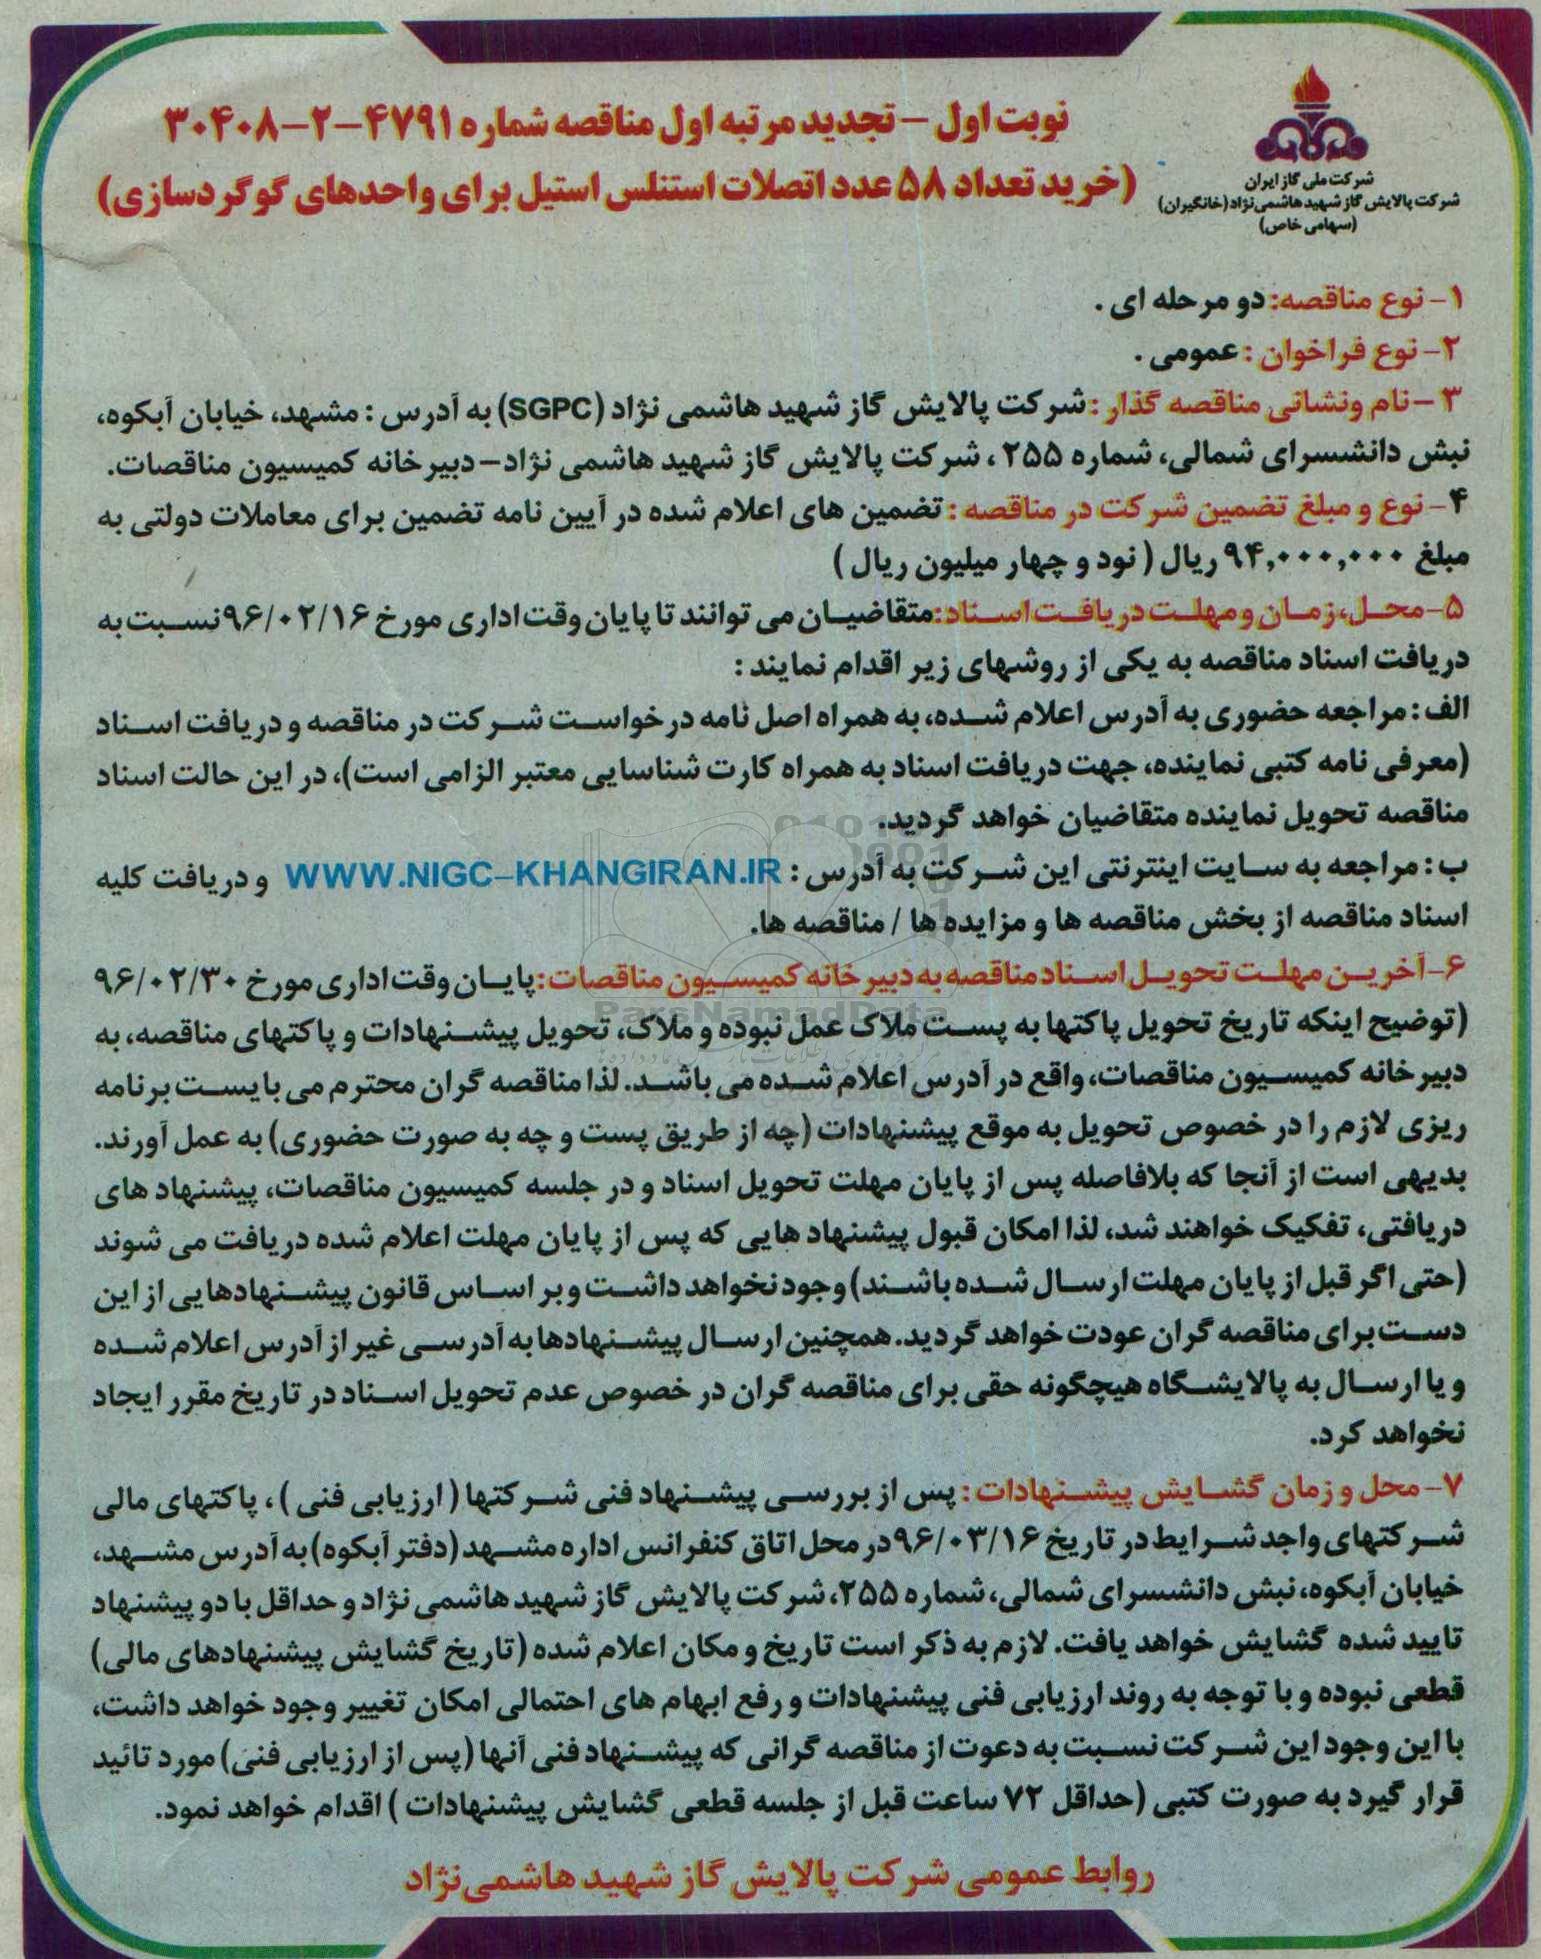 شرکت ملی گاز ایران
شرکت پالایش گاز شهید هاشمی‌نژاد (خانگیران)
(سهامی خاص)
نوبت اول - تجدید مرتبه اول مناقصه شماره ۴۷۹۱-۲-۳۰۴۰۸
(خرید تعداد ۵۸ عدد اتصلات استنلس استیل برای واحدهای گوگردسازی)
۱- نوع مناقصه: دو مرحله ای .
۲- نوع فراخوان : عمومی .
۳ - نام ونشانی مناقصه گذار : شرکت پالایش گاز شهید هاشمی نژاد (SGPC) به آدرس : مشهد، خیابان آبکوه،
نبش دانشسرای شمالی، شماره ۲۵۵ ، شرکت پالایش گاز شهید هاشمی نژاد- دبیرخانه کمیسیون مناقصات.
۴- نوع و مبلغ تضمین شرکت در مناقصه : تضمین های اعلام شده در آیین نامه تضمین برای معاملات دولتی به
مبلغ ۹۴,۰۰۰,۰۰۰ ریال ( نود و چهار میلیون ریال )
۵- محل، زمان و مهلت دریافت اسناد: متقاضیان می توانند تا پایان وقت اداری مورخ ۹۶/۰۲/۱۶ نسبت به
دریافت اسناد مناقصه به یکی از روشهای زیر اقدام نمایند :
الف : مراجعه حضوری به آدرس اعلام شده، به همراه اصل نامه درخواست شرکت در مناقصه و دریافت اسناد
(معرفی نامه کتبی نماینده، جهت دریافت اسناد به همراه کارت شناسایی معتبر الزامی است)، در این حالت اسناد
مناقصه تحویل نماینده متقاضیان خواهد گردید.
ب : مراجعه به سایت اینترنتی این شرکت به آدرس : WWW.NIGC-KHANGIRAN.IR و دریافت کلیه
اسناد مناقصه از بخش مناقصه ها و مزایده ها / مناقصه ها.
۶- آخرین مهلت تحویل اسناد مناقصه به دبیرخانه کمیسیون مناقصات: پایان وقت اداری مورخ ۹۶/۰۲/۳۰
ParsNamadData
(توضیح اینکه تاریخ تحویل پاکتها به پست ملاک عمل نبوده و ملاک، تحویل پیشنهادات و پاکتهای مناقصه، به
دبیرخانه کمیسیون مناقصات، واقع در آدرس اعلام شده می باشد. لذا مناقصه گران محترم می بایست برنامه
ریزی لازم را در خصوص تحویل به موقع پیشنهادات (چه از طریق پست و چه به صورت حضوری) به عمل آورند.
بدیهی است از آنجا که بلافاصله پس از پایان مهلت تحویل اسناد و در جلسه کمیسیون مناقصات، پیشنهاد های
دریافتی، تفکیک خواهند شد، لذا امکان قبول پیشنهاد هایی که پس از پایان مهلت اعلام شده دریافت می شوند
(حتی اگر قبل از پایان مهلت ارسال شده باشند) وجود نخواهد داشت و بر اساس قانون پیشنهادهایی از این
دست برای مناقصه گران عودت خواهد گردید. همچنین ارسال پیشنهادها به آدرسی غیر از آدرس اعلام شده
و یا ارسال به پالایشگاه هیچگونه حقی برای مناقصه گران در خصوص عدم تحویل اسناد در تاریخ مقرر ایجاد
نخواهد کرد.
۷- محل و زمان گشایش پیشنهادات : پس از بررسی پیشنهاد فنی شرکتها ( ارزیابی فنی ) ، پاکتهای مالی
شرکتهای واجد شرایط در تاریخ ۹۶/۰۳/۱۶ در محل اتاق کنفرانس اداره مشهد (دفتر آبکوه) به آدرس مشهد،
خیابان آبکوه، نبش دانشسرای شمالی، شماره ۲۵۵، شرکت پالایش گاز شهید هاشمی نژاد و حداقل با دو پیشنهاد
تایید شده گشایش خواهد یافت. لازم به ذکر است تاریخ و مکان اعلام شده (تاریخ گشایش پیشنهادهای مالی)
قطعی نبوده و با توجه به روند ارزیابی فنی پیشنهادات و رفع ابهام های احتمالی امکان تغییر وجود خواهد داشت،
با این وجود این شرکت نسبت به دعوت از مناقصه گرانی که پیشنهاد فنی آنها (پس از ارزیابی فنی) مورد تائید
قرار گیرد به صورت کتبی (حداقل ۷۲ ساعت قبل از جلسه قطعی گشایش پیشنهادات ) اقدام خواهد نمود.
روابط عمومی شرکت پالایش گاز شهید هاشمی‌نژاد